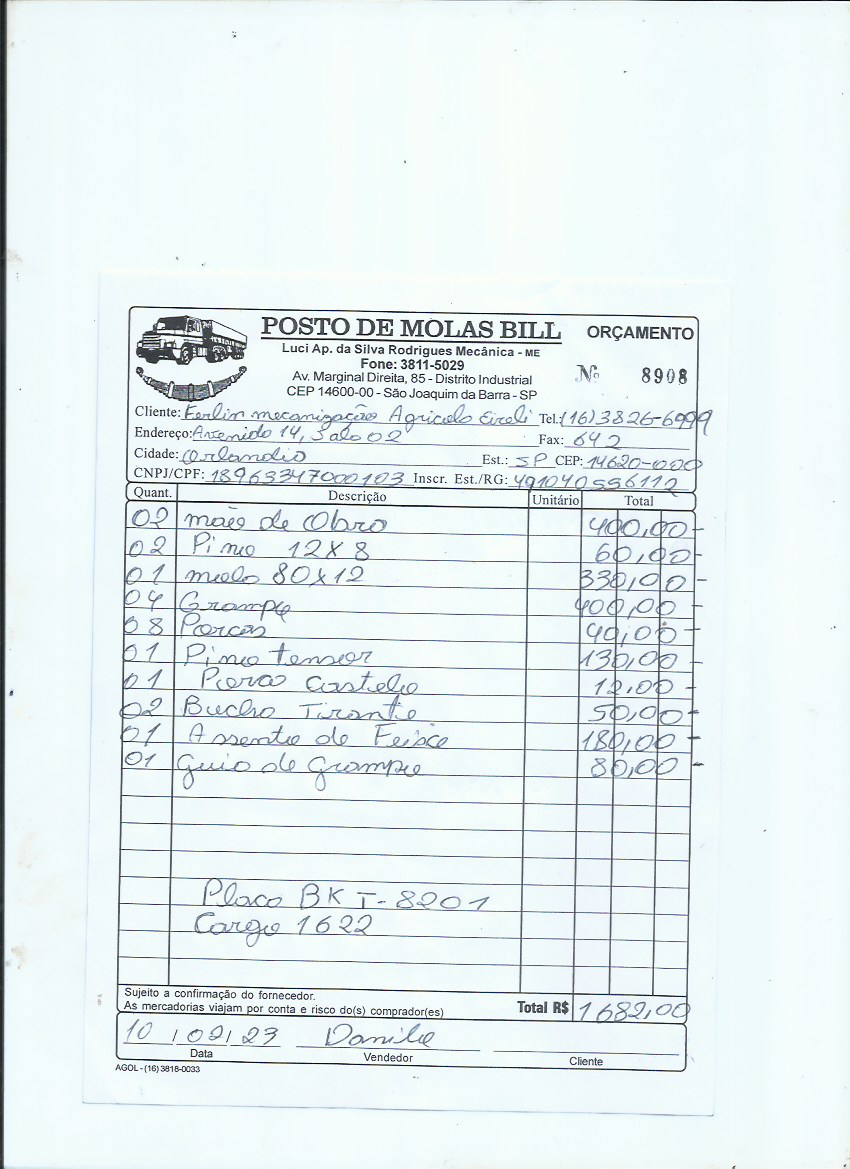 POSTO DE MOLAS BILL
ORÇAMENTO
Luci Ap. da Silva Rodrigues Mecânica - ME
Fone: 3811-5029
Av. Marginal Direita, 85 - Distrito Industrial
CEP 14600-00 - São Joaquim da Barra - SP
Nº 8908
Cliente: Ferlin mecanização Agricola Eireli Tel.: (16) 3826-6999
Endereço: Avenida 14, Sala 02 Fax: 642
Cidade: Orlandia Est.: SP CEP: 14620-000
CNPJ/CPF: 18963347000103 Inscr. Est./RG: 491040556112
Quant. Descrição Unitário Total
02 mão de Obra 400,00-
02 Pino 12x8 60,00-
01 mola 80x12 330,00-
04 Grampo 400,00-
08 Porcas 40,00-
01 Pino tensor 130,00-
01 Porca Castelo 12,00-
02 Bucha Tirante 50,00-
01 Assento de Feixe 180,00-
01 Guia de Grampo 80,00-
Placa BKT-8201
Cargo 1622
Sujeito a confirmação do fornecedor.
As mercadorias viajam por conta e risco do(s) comprador(es) Total R$ 1682,00
10/02/23 Danilo
Data Vendedor Cliente
AGOL - (16) 3818-0033